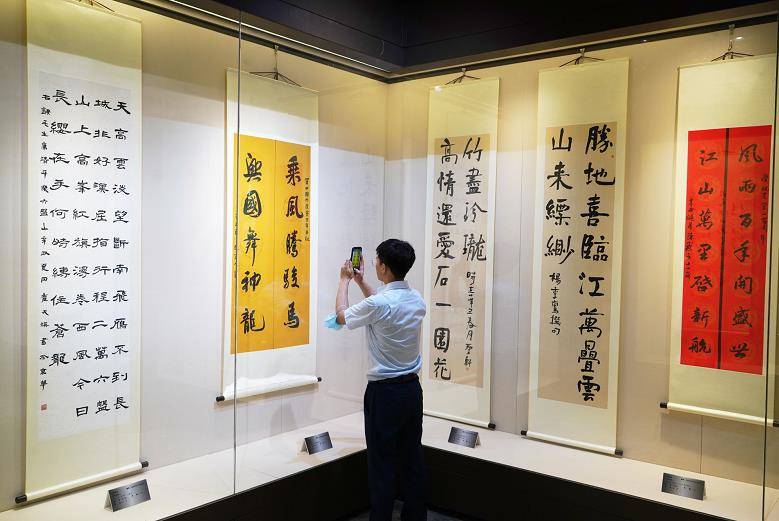 天高雲淡望斷南飛雁不到長
城非好漢屈指行程二萬六盤
山上高峯紅旗漫卷西風今日
長纓在手何時縛住蒼龍
乘風騰駿馬
興國舞神龍
竹盡玲瓏
高情還愛石一園花
勝地喜臨江萬疊雲
山來縹緲
風雨百年開盛世
江山萬里啓新航